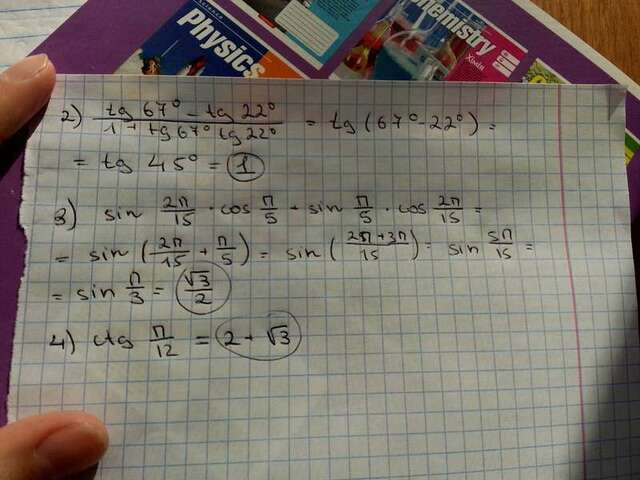 Science
Physics
Chemistry
Ximia
2) (tg 67° - tg 22°) / (1 + tg 67° tg 22°) = tg (67° - 22°) =
= tg 45° = 1
3) sin 2π/15 · cos π/5 + sin π/5 · cos 2π/15 =
= sin (2π/15 + π/5) = sin (2π+3π/15) = sin 5π/15 =
= sin π/3 = √3/2
4) ctg π/12 = 2 + √3